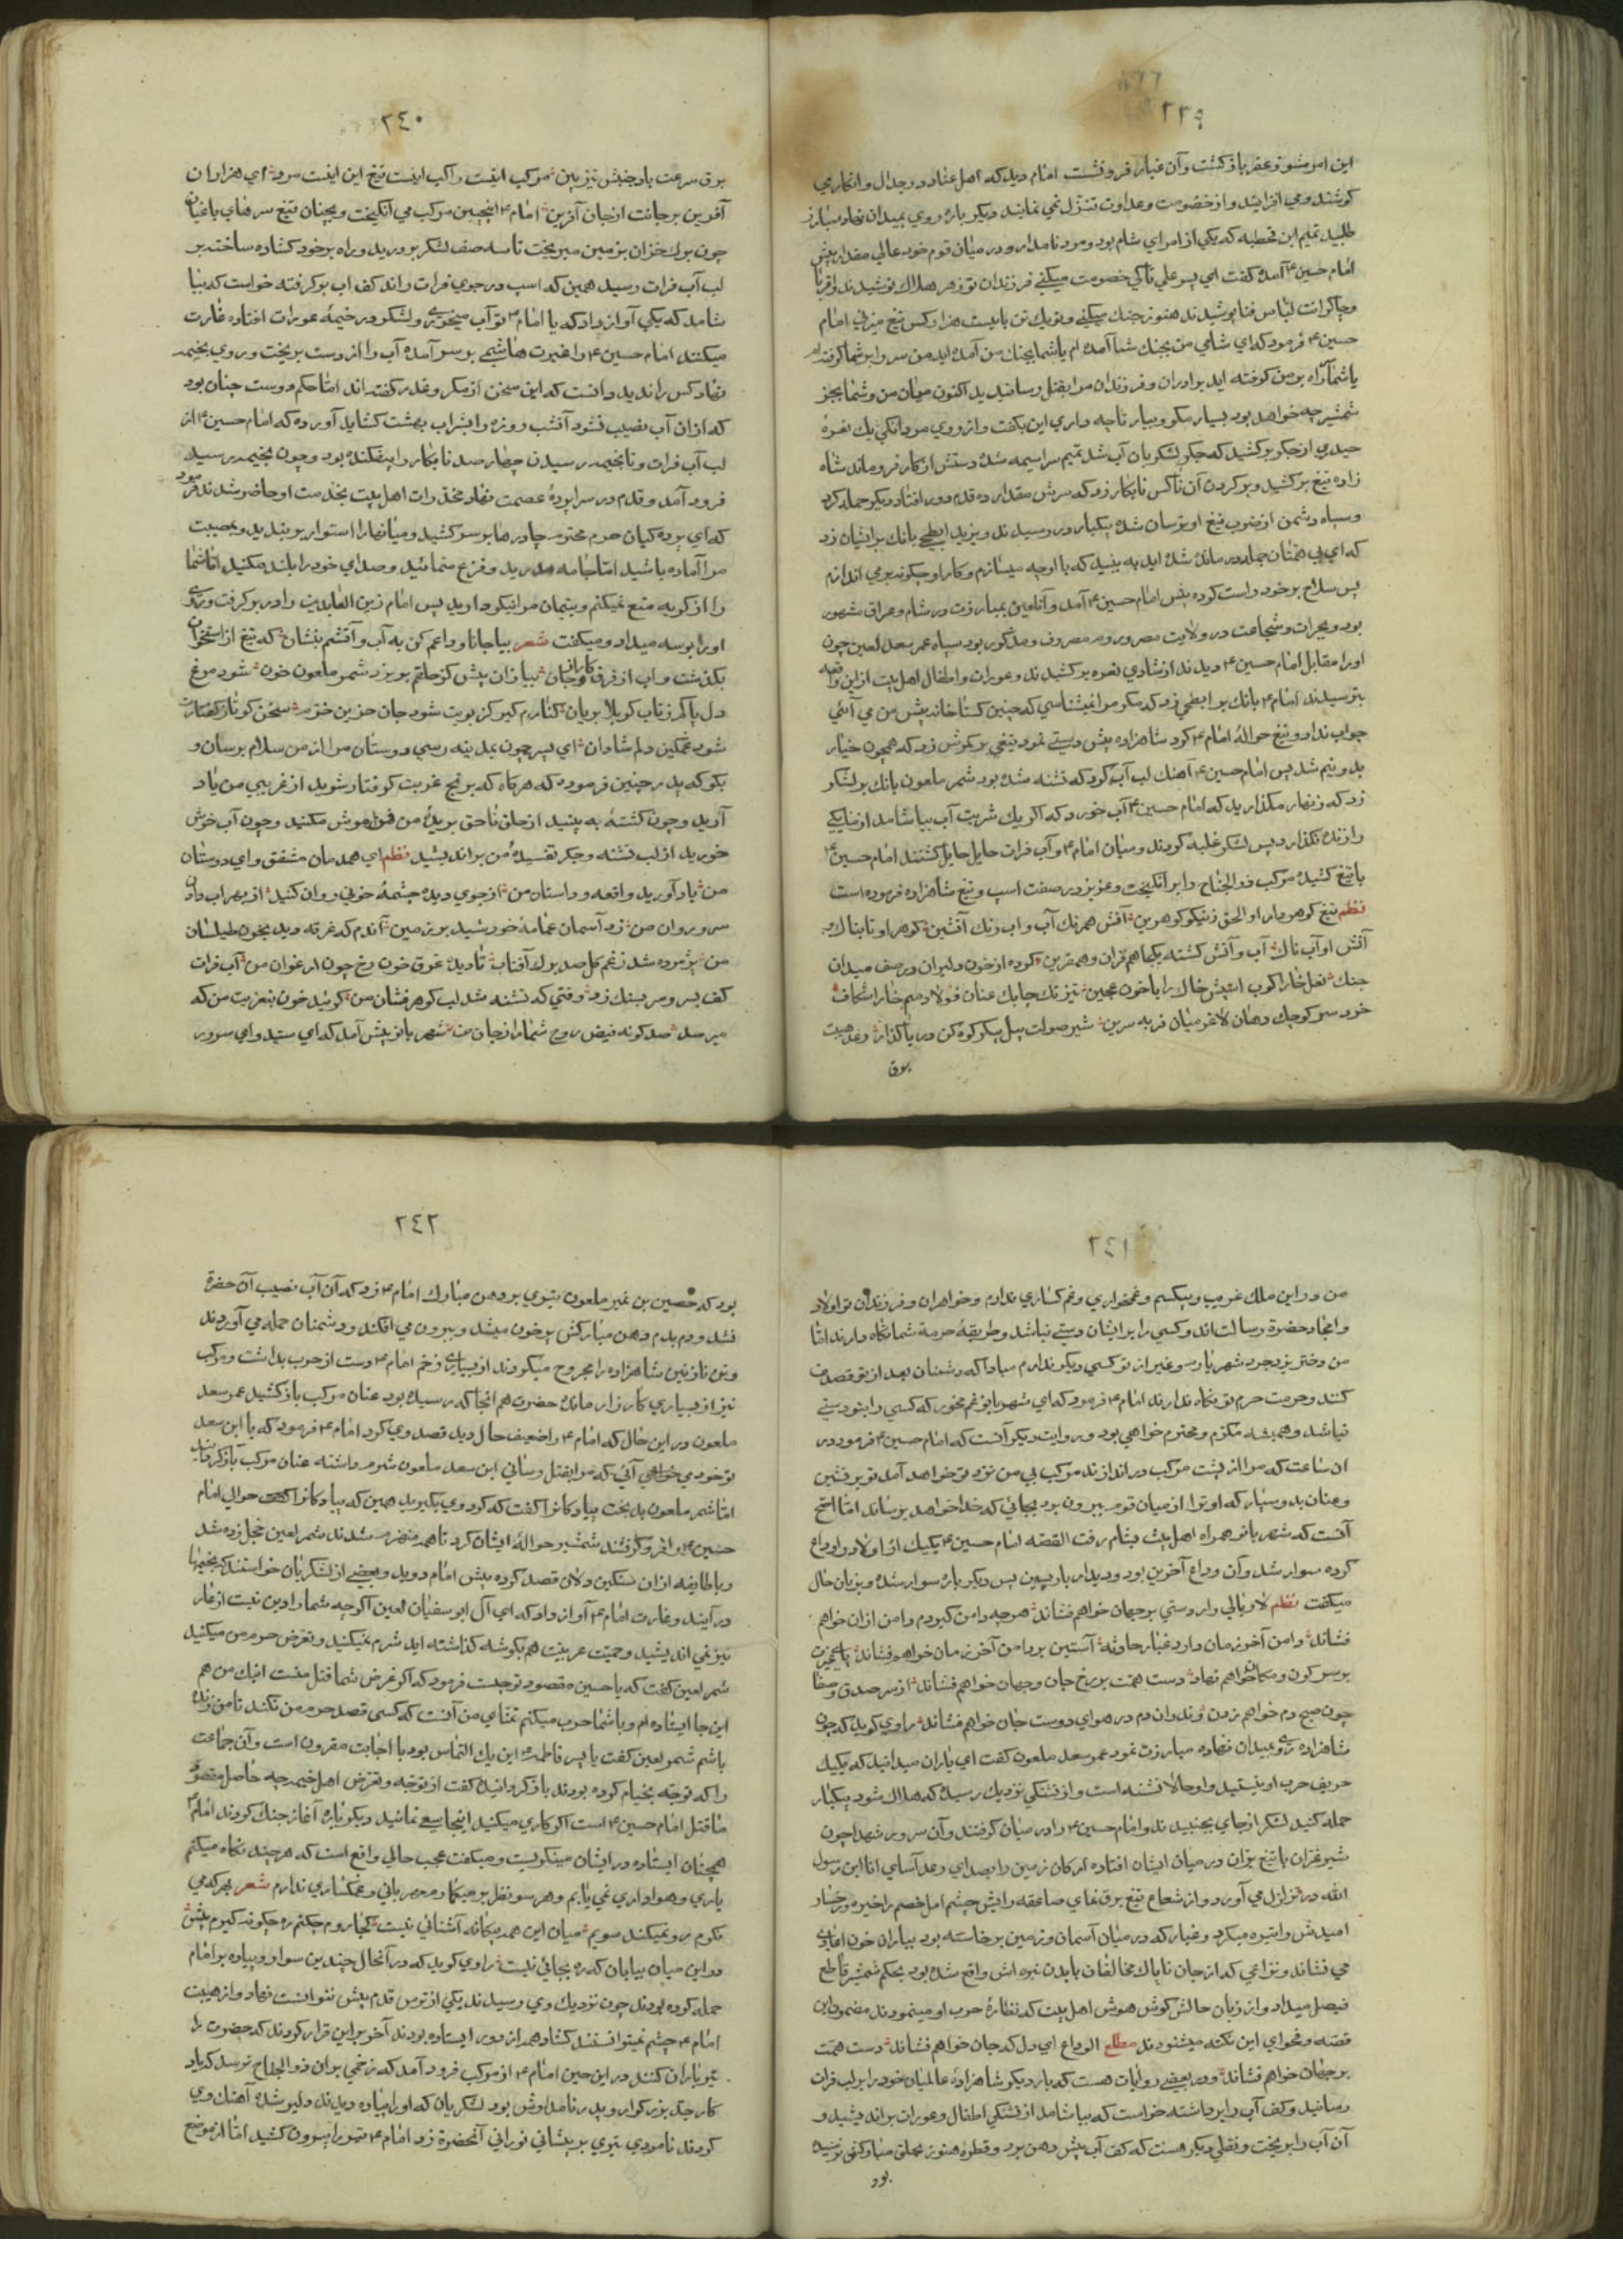 ٢٣٩
این امر مشوّر عفر باز کشت وآن غبار فرو نشست امام دید که اهل عناد در جدال وانکار می
کوشند ومی افزایند واز خصومت وعداوت تنزّل نمی نمایند دیکر باره روی بمیدان نهاد ومبارز
طلبید تمیم ابن قحطبه که یکی از امرای شام بود ومرد نامدار ودر میان قوم خود عالی مقدار پیش
امام حسین آمد وکفت ای پسر علی تا کی خصومت میکنی فرزندان تو زهر هلاك نوشیدند واقربا
وچاکرانت لباس فنا پوشیدند هنوز جنك میکنی وتو یك تن با بیست هزار کس تیغ میزنی امام
حسین فرمود که ای شامی من بجنك شما آمده ام یا شما بجنك من آمده اید من سر راه بر شما کرفته ام
یا شما راه بر من کرفته اید برادران وفرزندان مرا بقتل رسانیدید اکنون میان من وشما بجز
شمشیر چه خواهد بود بسیار مکو وبیار تا چه داری این بکفت واز روی مردانکی یك نعرهٔ
حیدری از جکر بر کشید که جکر لشکریان آب شد تمیم سراسیمه شده دستش از کار فرو ماند شاه
زاده تیغ بر کشید وبر کردن آن ناکس نابکار زد که سرش مقدار ده قدم دور افتاد ودیکر حمله کرد
وسپاه دشمن از ضرب تیغ او ترسان شده بیکبار در رمیدند ویزید ابطحی بانك بر ایشان زد
که ای بی همتان چرا در مانده شده اید به بینید که با او چه میسازم وکار او چکونه بر می اندازم
پس سلاح بر خود راست کرده پیش امام حسین آمد وآن لعین بمبارزت در شام وعراق مشهور
بود وبجرات وشجاعت در ولایت مصر وروم معروف ومذکور بود سپاه عمر سعد لعین چون
او را مقابل امام حسین دیدند از شادی نعره بر کشیدند وعورات واطفال اهل بیت از این واقعه
بترسیدند امام بانك بر ابطحی زد که مکر مرا نمیشناسی که چنین کستاخانه پیش من می آئی
جواب نداد وتیغ حوالهٔ امام کرد شاهزاده پیش دستی نمود تیغی بر کمرش زد که همچون خیار
بدو نیم شد پس امام حسین آهنك لب آب کرد که تشنه شده بود شمر ملعون بانك بر لشکر
زد که زنهار مکذارید که امام حسین آب خورد که اکر یك شربت آب بیاشامد از ما یکی
را زنده نکذارد پس لشکر غلبه کردند ومیان امام وآب فرات حایل کشتند امام حسین
با تیغ کشیده مرکب ذو الجناح را بر انکیخت وعزیز در صفت اسپ وتیغ شاهزاده فرموده است
نظم تیغ کوهر دار او الحق ز نیکو کوهرین آتش همرنك آب وآب رنك آتشین کوهر او تابناك و
آتش او آب ناك آب وآتش کشته یکجا همقران وهمقرین کرده از خون دلیران در صف میدان
جنك نعل خارا کوب اسپش خاك را با خون عجین تیز تك چابك عنان فولاد سم خارا شکاف
خرد سر کوچك دهان لاغر میان فربه سرین شیر صولت پیل پیکر کوه کن دریا کذار رعد هیبت
برق
٢٤٠
برق سرعت باد جنبش تیز بین مرکب اینت راکب اینت تیغ این اینت مرد ای هزاران
آفرین بر جانت از جان آفرین امام اینچنین مرکب می انکیخت وبچنان تیغ سرهای باغیان
چون برك خزان بر زمین میریخت تا سه صف لشکر بر درید وراه بر خود کشاده ساخته بر
لب آب فرات رسید همین که اسپ در جوی فرات راند کف آب بر کرفته خواست که بیا
شامد که یکی آواز داد که یا امام تو آب میخوری ولشکر در خیمهٔ عورات افتاده غارت
میکنند امام حسین را غیرت هاشمی بر سر آمده آب را از دست بریخت وروی بخیمه
نهاد کس را ندید دانست که این سخن از مکر وغدر کفته اند امّا حکم دوست چنان بود
که از ان آب نصیب نشود آنشب روزه را بشراب بهشت کشاید آورده که امام حسین از
لب آب فرات وتا بخیمه رسیدن چهار صد نابکار را بیفکنده بود وچون بخیمه رسید
فرود آمد وقدم در سراپردهٔ عصمت نهاد مخدّرات اهل بیت بخدمت او حاضر شدند فرمود
که ای پرده کیان حرم محترم چادرها بر سر کشید ومیانها را استوار بر بندید وبمصیبت
مرا آماده باشید امّا جامه مدرید وفزع منمائید وصدای خود را بلند مکنید امّا شما
را از کریه منع نمیکنم ویتیمان مرا نیکو دارید پس امام زین العابدین را در بر کرفت وروی
او را بوسه میداد ومیکفت شعر بیا جانا وداعم کن به آب وآتشم بنشان که تیغ از استخوان
بکذشت وآب از فرق وکار از جان بیا زان پیش کز حلقم بریزد شمر ملعون خون شود مرغ
دل پاکم ز تاب کربلا بریان کنارم کیر کز بویت شود جان حزین خرّم سخن کو تا ز کفتارت
شود غمکین دلم شادان ای پسر چون بمدینه رسی دوستان مرا از من سلام برسان و
بکو که پدرم چنین فرموده که هر کاه که برنج غربت کرفتار شوید از غریبی من یاد
آرید وچون کشتهٔ به بینید از حلق ناحق بریدهٔ من فراموش مکنید وچون آب خوش
خورید از لب تشنه وجکر تفسیدهٔ من بر اندیشید نظم ای همدمان مشفق وای دوستان
من یاد آورید واقعه وداستان من از جوی دیده چشمهٔ خونی روان کنید از بهر آب دادن
سرو روان من زد آسمان عمامهٔ خورشید بر زمین آندم که غرقه دید بخون طیلسان
من پژمرده شد ز غم کل صد برك آفتاب تا دید غرق خون رخ چون ارغوان من آب فرات
کف بسر ومر بسنك زد وقتی که تشنه شد لب کوهر فشان من کوئید خون بتعزیت من که
میرسد صد کونه فیض روح شما را ز جان من شهر بانو پیش آمد که ای سیّد وای سرور
٢٤١
من در این ملك غریب وبیکسم وغمخواری وغم کساری ندارم وخواهران وفرزندان تو اولاد
وامجاد حضرة رسالت اند وکسی را بر ایشان دستی نباشد وطریقهٔ حرمة شما نکاه دارند امّا
من دختر یزدجرد شهریارم وغیر از تو کسی دیکر ندارم مبادا که دشمنان بعد از تو قصد من
کنند وحرمت حرم تو نکاه ندارند امام فرمود که ای شهر بانو غم مخور که کسی را بتو دستی
نباشد وهمیشه مکرّم ومحترم خواهی بود ودر روایت دیکر آنست که امام حسین فرمود در
ان ساعت که مرا از پشت مرکب در اندازند مرکب بی من نزد تو خواهد آمد تو بر نشین
وعنان بدو سپار که او ترا از میان قوم بیرون برد بجائی که خدا خواهد برساند امّا اصح
آنست که شهر بانو همراه اهل بیت بشام رفت القصه امام حسین یکیك از اولاد را وداع
کرده سوار شد وآن وداع آخرین بود ودیدار بازپسین پس دیکر باره سوار شده وبزبان حال
میکفت نظم لا ابالی وار دستی بر جهان خواهم فشاند هر چه دامن کیردم دامن از ان خواهم
فشاند دامن آخر زمان دارد غبار حادثه آستین بر دامن آخر زمان خواهم فشاند پای غیرت
بر سر کون ومکان خواهم نهاد دست همّت بر رخ جان وجهان خواهم فشاند از سر صدق وصفا
چون صبح دم خواهم زدن وند ران دم در هوای دوست جان خواهم فشاند راوی کوید که چون
شاهزاده روی بمیدان نهاده مبارزت نمود عمر سعد ملعون کفت ای یاران میدانید که یکیك
حریف حرب او نیستید واو حالا تشنه است واز تشنکی نزدیك رسیده که هلاك شود بیکبار
حمله کنید لشکر از جای بجنبیدند وامام حسین را در میان کرفتند وآن سرور شهدا چون
شیر غرّان با تیغ برّان در میان ایشان افتاده ارکان زمین را بصدای رعد آسای انا ابن رسول
الله در تزلزل می آورد واز شعاع تیغ برق نمای صاعقه رایش چشم امل خصم را خیره ورخسار
امیدش را تیره میکرد وغبار که در میان آسمان وزمین بر خاسته بود بباران خون اعادی
می نشاند ونزاعی که از جان ناپاك مخالفان با بدن تیره اش واقع شده بود بحکم شمشیر قاطع
فیصل میداد واز زبان حالش کوش هوش اهل بیت که نظارهٔ حرب او مینمودند مضمون این
قصّه وفحوای این نکته میشنودند مطلع الوداع ای دل که جان خواهم فشاند دست همّت
بر جهان خواهم فشاند ودر بعضی روایات هست که بار دیکر شاهزادهٔ عالمیان خود را بر لب فرات
رسانید وکف آب را برداشته خواست که بیاشامد از تشنکی اطفال وعورات بر اندیشید و
آن آب را بریخت ونقلی دیکر هست که کف آب پیش دهن برد وقطره هنوز بحلق مبارکش نرسیده
بود
٢٤٢
بود که حصین بن نمیر ملعون تیری بر دهن مبارك امام زد که آن آب نصیب آن حضرة
نشد ودم بدم دهن مبارکش پر خون میشد وبیرون می افکند ودشمنان حمله می آوردند
وتن نازنین شاهزاده را مجروح میکردند از بسیاری زخم امام دست از حرب بداشت ومرکب
نیز از بسیاری کارزار مانده حضرت هم انجا که رسیده بود عنان مرکب باز کشید عمر سعد
ملعون در این حال که امام را ضعیف حال دید قصد وی کرد امام فرمود که یا ابن سعد
تو خود می خواهی آئی که مرا بقتل رسانی ابن سعد ملعون شرم داشته عنان مرکب باز کردانید
امّا شمر ملعون بد بخت پیادکانرا کفت که کرد وی بکیرید همین که پیادکان حوالی امام
حسین را فرو کرفتند شمشیر حوالهٔ ایشان کرد تا همه منهزم شدند شمر لعین خجل زده شد
وبا طایفه از ان سنکین دلان قصد کرده پیش امام دوید وبعضی از لشکریان خواستند که بخیمها
در آیند وغارت امام آواز داد که ای آل ابو سفیان لعین اکر چه شما را دین نیست از عار
نیز نمی اندیشید وحمیّت عربیت هم بکوشه کذاشته اید شرم نمیکنید وتعرّض حرم من میکنید
شمر لعین کفت که یا حسین مقصود تو چیست فرمود که اکر غرض شما قتل منست اینك من هم
این جا ایستاده ام وبا شما حرب میکنم تمنّای من آنست که کسی قصد حرم من نکند تا من زنده
باشم شمر لعین کفت یا پسر فاطمه این یك التماس بود با اجابت مقرون است وآن جماعت
را که توجه بخیام کرده بودند باز کردانید وکفت از توجّه وتعرّض اهل خیمه چه حاصل مقصود
ما قتل امام حسین است اکر کاری میکنید اینجا سعی نمائید دیکر باره آغاز جنك کردند امام
همچنان ایستاده در ایشان مینکریست ومیکفت عجب حالی واقع است که هر چند نکاه میکنم
یاری وهواداری نمی یابم وهر سو نظر بر میکمارم مهربانی وغمکساری ندارم شعر بهر که می
نکرم رو نمیکند سویم میان این همه بیکانه آشنائی نیست کجا روم چکنم ره چکونه کیرم پیش
در این میان بیابان که ره بجائی نیست راوی کوید که در آنحال چندین سوار وپیاده بر امام
حمله کرده بودند چون نزدیك وی رسیدند یکی از ترس قدم پیش نتوانست نهاد واز هیبت
امام چشم نمیتوانستند کشاد همه از دور ایستاده بودند آخر بر این قرار کردند که حضرت را
تیر باران کنند در این حین امام از مرکب فرود آمد که زخمی بران ذو الجناح نرسد که یاد
کار جدّ بزرکوار وپدر نامدارش بود لشکریان که او را پیاده دیدند دلیر شده آهنك وی
کردند نامردی تیری بر پیشانی نورانی آنحضرة زد امام تیر را بیرون کشید امّا از موضع